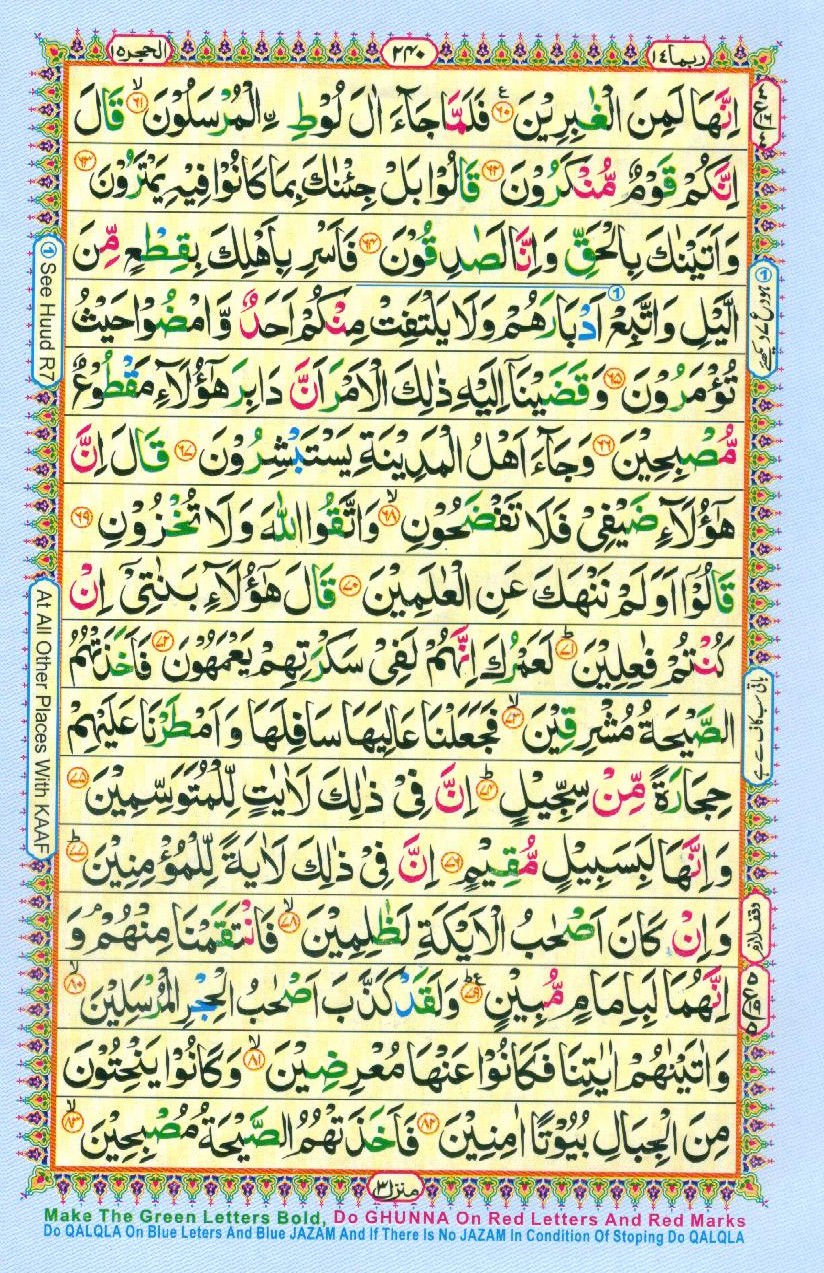 ربما ١٤
٢٤٠
الحجر ١٥
اِنَّهَا لَمِنَ الْغٰبِرِيْنَ ۶۰ فَلَمَّا جَآءَ اٰلَ لُوْطِ ِۨالْمُرْسَلُوْنَ ۶۱ قَالَ
اِنَّكُمْ قَوْمٌ مُّنْكَرُوْنَ ۶۲ قَالُوْا بَلْ جِئْنٰكَ بِمَا كَانُوْا فِيْهِ يَمْتَرُوْنَ ۶۳
وَاَتَيْنٰكَ بِالْحَقِّ وَاِنَّا لَصٰدِقُوْنَ ۶۴ فَاَسْرِ بِاَهْلِكَ بِقِطْعٍ مِّنَ
الَّيْلِ وَاتَّبِعْ اَدْبَارَهُمْ وَلَا يَلْتَفِتْ مِنْكُمْ اَحَدٌ وَّامْضُوْا حَيْثُ
تُؤْمَرُوْنَ ۶۵ وَقَضَيْنَآ اِلَيْهِ ذٰلِكَ الْاَمْرَ اَنَّ دَابِرَ هٰٓؤُلَآءِ مَقْطُوْعٌ
مُّصْبِحِيْنَ ۶۶ وَجَآءَ اَهْلُ الْمَدِيْنَةِ يَسْتَبْشِرُوْنَ ۶۷ قَالَ اِنَّ
هٰٓؤُلَآءِ ضَيْفِيْ فَلَا تَفْضَحُوْنِ ۶۸ وَاتَّقُوا اللّٰهَ وَلَا تُخْزُوْنِ ۶۹
قَالُوْٓا اَوَلَمْ نَنْهَكَ عَنِ الْعٰلَمِيْنَ ۷۰ قَالَ هٰٓؤُلَآءِ بَنٰتِيْٓ اِنْ
كُنْتُمْ فٰعِلِيْنَ ۷۱ لَعَمْرُكَ اِنَّهُمْ لَفِيْ سَكْرَتِهِمْ يَعْمَهُوْنَ ۷۲ فَاَخَذَتْهُمُ
الصَّيْحَةُ مُشْرِقِيْنَ ۷۳ فَجَعَلْنَا عَالِيَهَا سَافِلَهَا وَاَمْطَرْنَا عَلَيْهِمْ
حِجَارَةً مِّنْ سِجِّيْلٍ ۷۴ اِنَّ فِيْ ذٰلِكَ لَاٰيٰتٍ لِّلْمُتَوَسِّمِيْنَ ۷۵
وَاِنَّهَا لَبِسَبِيْلٍ مُّقِيْمٍ ۷۶ اِنَّ فِيْ ذٰلِكَ لَاٰيَةً لِّلْمُؤْمِنِيْنَ ۷۷
وَاِنْ كَانَ اَصْحٰبُ الْاَيْكَةِ لَظٰلِمِيْنَ ۷۸ فَانْتَقَمْنَا مِنْهُمْ ۘ وَ
اِنَّهُمَا لَبِاِمَامٍ مُّبِيْنٍ ۷۹ وَلَقَدْ كَذَّبَ اَصْحٰبُ الْحِجْرِ الْمُرْسَلِيْنَ ۸۰
وَاٰتَيْنٰهُمْ اٰيٰتِنَا فَكَانُوْا عَنْهَا مُعْرِضِيْنَ ۸۱ وَكَانُوْا يَنْحِتُوْنَ
مِنَ الْجِبَالِ بُيُوْتًا اٰمِنِيْنَ ۸۲ فَاَخَذَتْهُمُ الصَّيْحَةُ مُصْبِحِيْنَ ۸۳
① See Huud R7
At All Other Places With KAAF
منزل ٣
Make The Green Letters Bold, Do GHUNNA On Red Letters And Red Marks
Do QALQLA On Blue Leters And Blue JAZAM And If There Is No JAZAM In Condition Of Stoping Do QALQLA